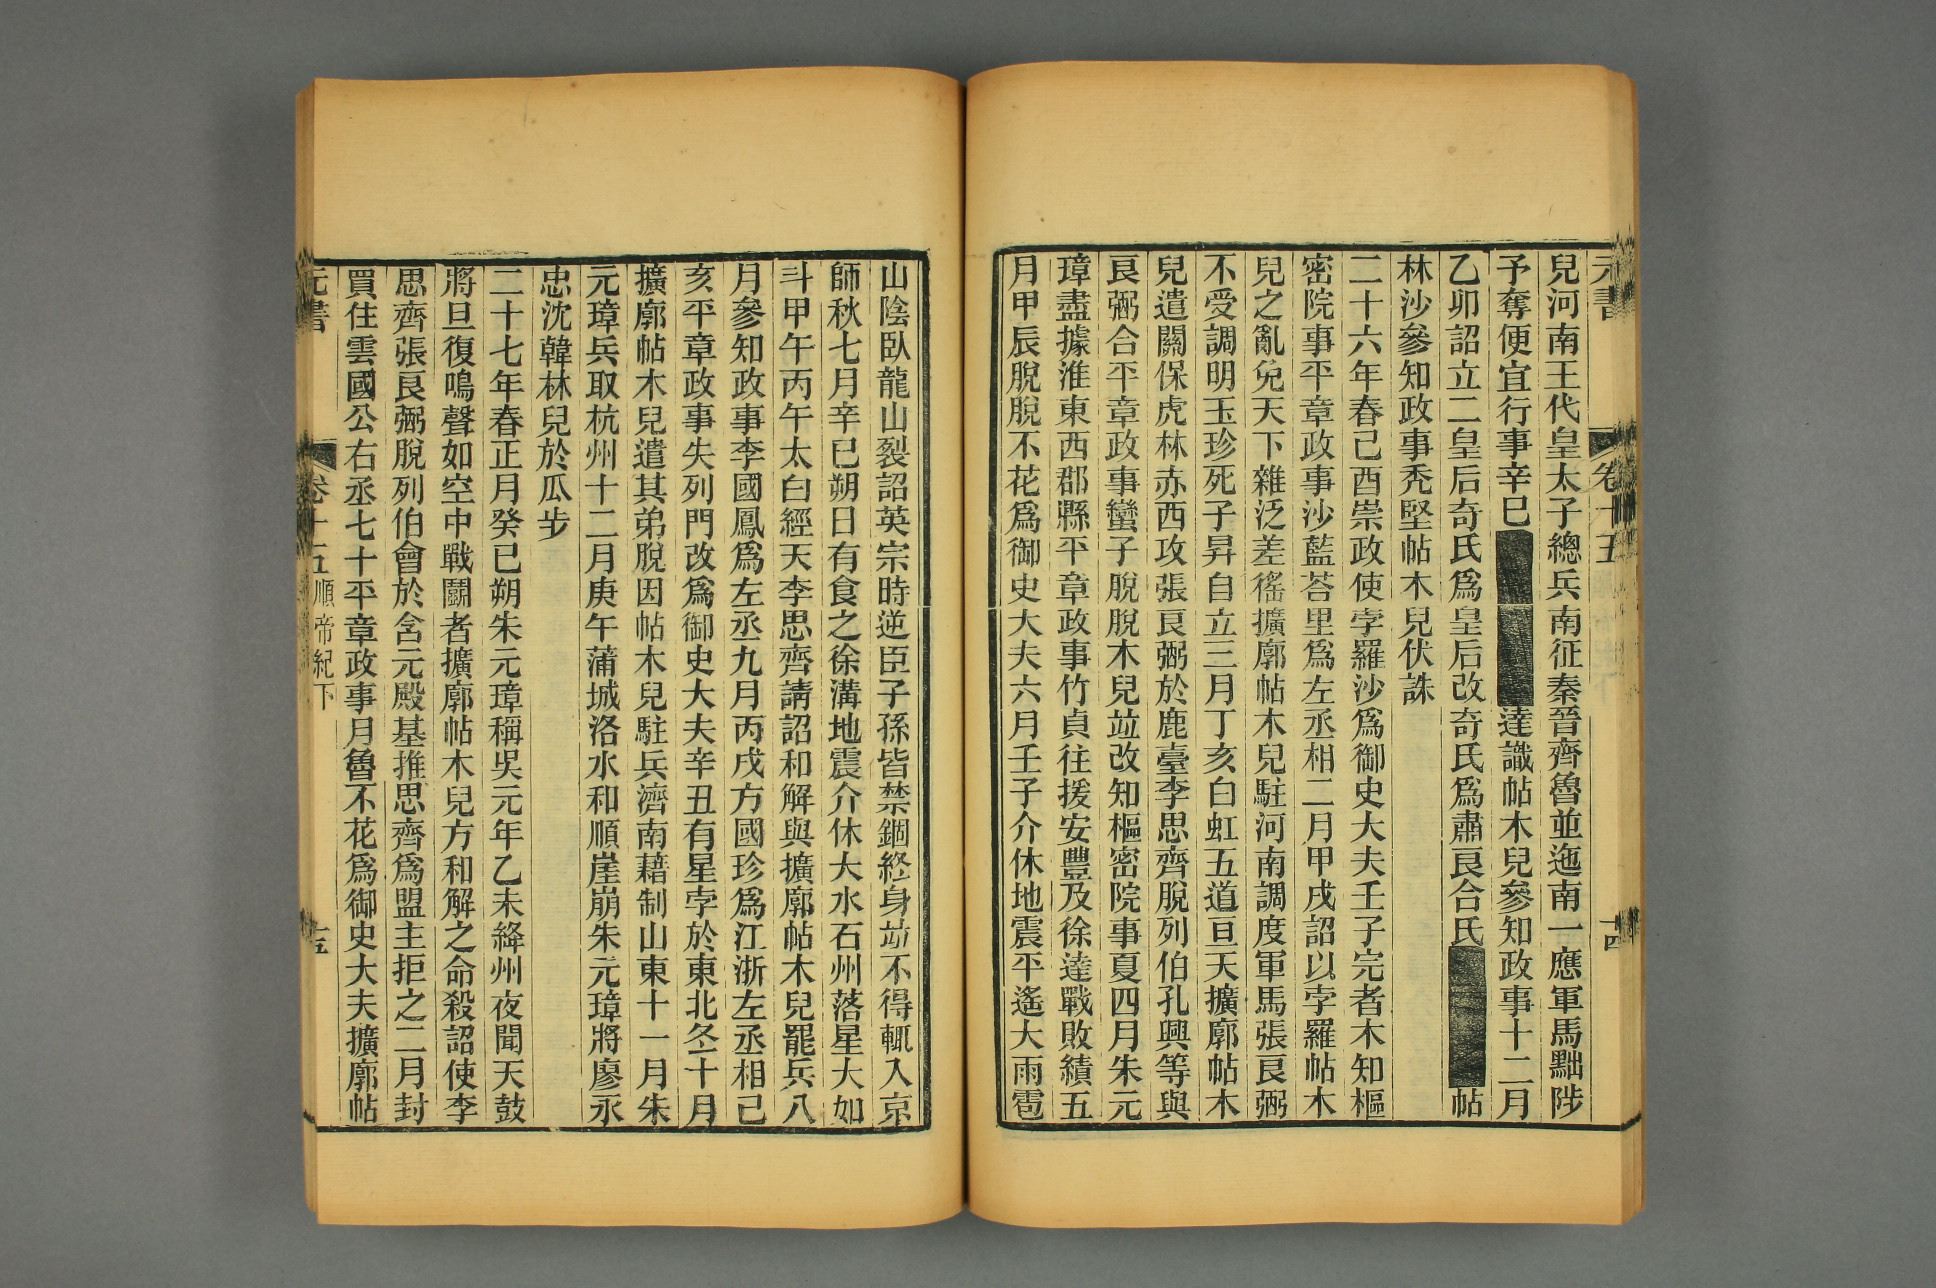 元書
卷十五
十四
兒河南王代皇太子總兵南征秦晉齊魯並迤南一應軍馬黜陟
予奪便宜行事辛巳達識帖木兒參知政事十二月
乙卯詔立二皇后奇氏爲皇后改奇氏爲肅良合氏帖
林沙參知政事禿堅帖木兒伏誅
二十六年春己酉崇政使孛羅沙爲御史大夫壬子完者木知樞
密院事平章政事沙藍荅里爲左丞相二月甲戌詔以孛羅帖木
兒之亂免天下雜泛差徭擴廓帖木兒駐河南調度軍馬張良弼
不受調明玉珍死子昇自立三月丁亥白虹五道亘天擴廓帖木
兒遣關保虎林赤西攻張良弼於鹿臺李思齊脫列伯孔興等與
良弼合平章政事蠻子脫脫木兒竝改知樞密院事夏四月朱元
璋盡據淮東西郡縣平章政事竹貞往援安豐及徐達戰敗績五
月甲辰脫脫不花爲御史大夫六月壬子介休地震平遙大雨雹
山陰臥龍山裂詔英宗時逆臣子孫皆禁錮終身竝不得輒入京
師秋七月辛巳朔日有食之徐溝地震介休大水石州落星大如
斗甲午丙午太白經天李思齊請詔和解與擴廓帖木兒罷兵八
月參知政事李國鳳爲左丞九月丙戌方國珍爲江浙左丞相己
亥平章政事失列門改爲御史大夫辛丑有星孛於東北冬十月
擴廓帖木兒遣其弟脫因帖木兒駐兵濟南藉制山東十一月朱
元璋兵取杭州十二月庚午蒲城洛水和順崖崩朱元璋將廖永
忠沈韓林兒於瓜步
二十七年春正月癸巳朔朱元璋稱吳元年乙未絳州夜聞天鼓
將旦復鳴聲如空中戰鬬者擴廓帖木兒方和解之命殺詔使李
思齊張良弼脫列伯會於含元殿基推思齊爲盟主拒之二月封
買住雲國公右丞七十平章政事月魯不花爲御史大夫擴廓帖
元書
卷十五
順帝紀下
十五